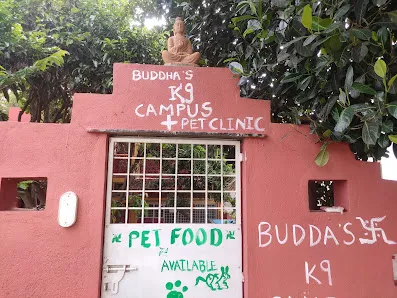 BUDDHA'S
K9
CAMPUS
+ PET CLINIC
PET FOOD
AVAILABLE
BUDDA'S 卐
K9